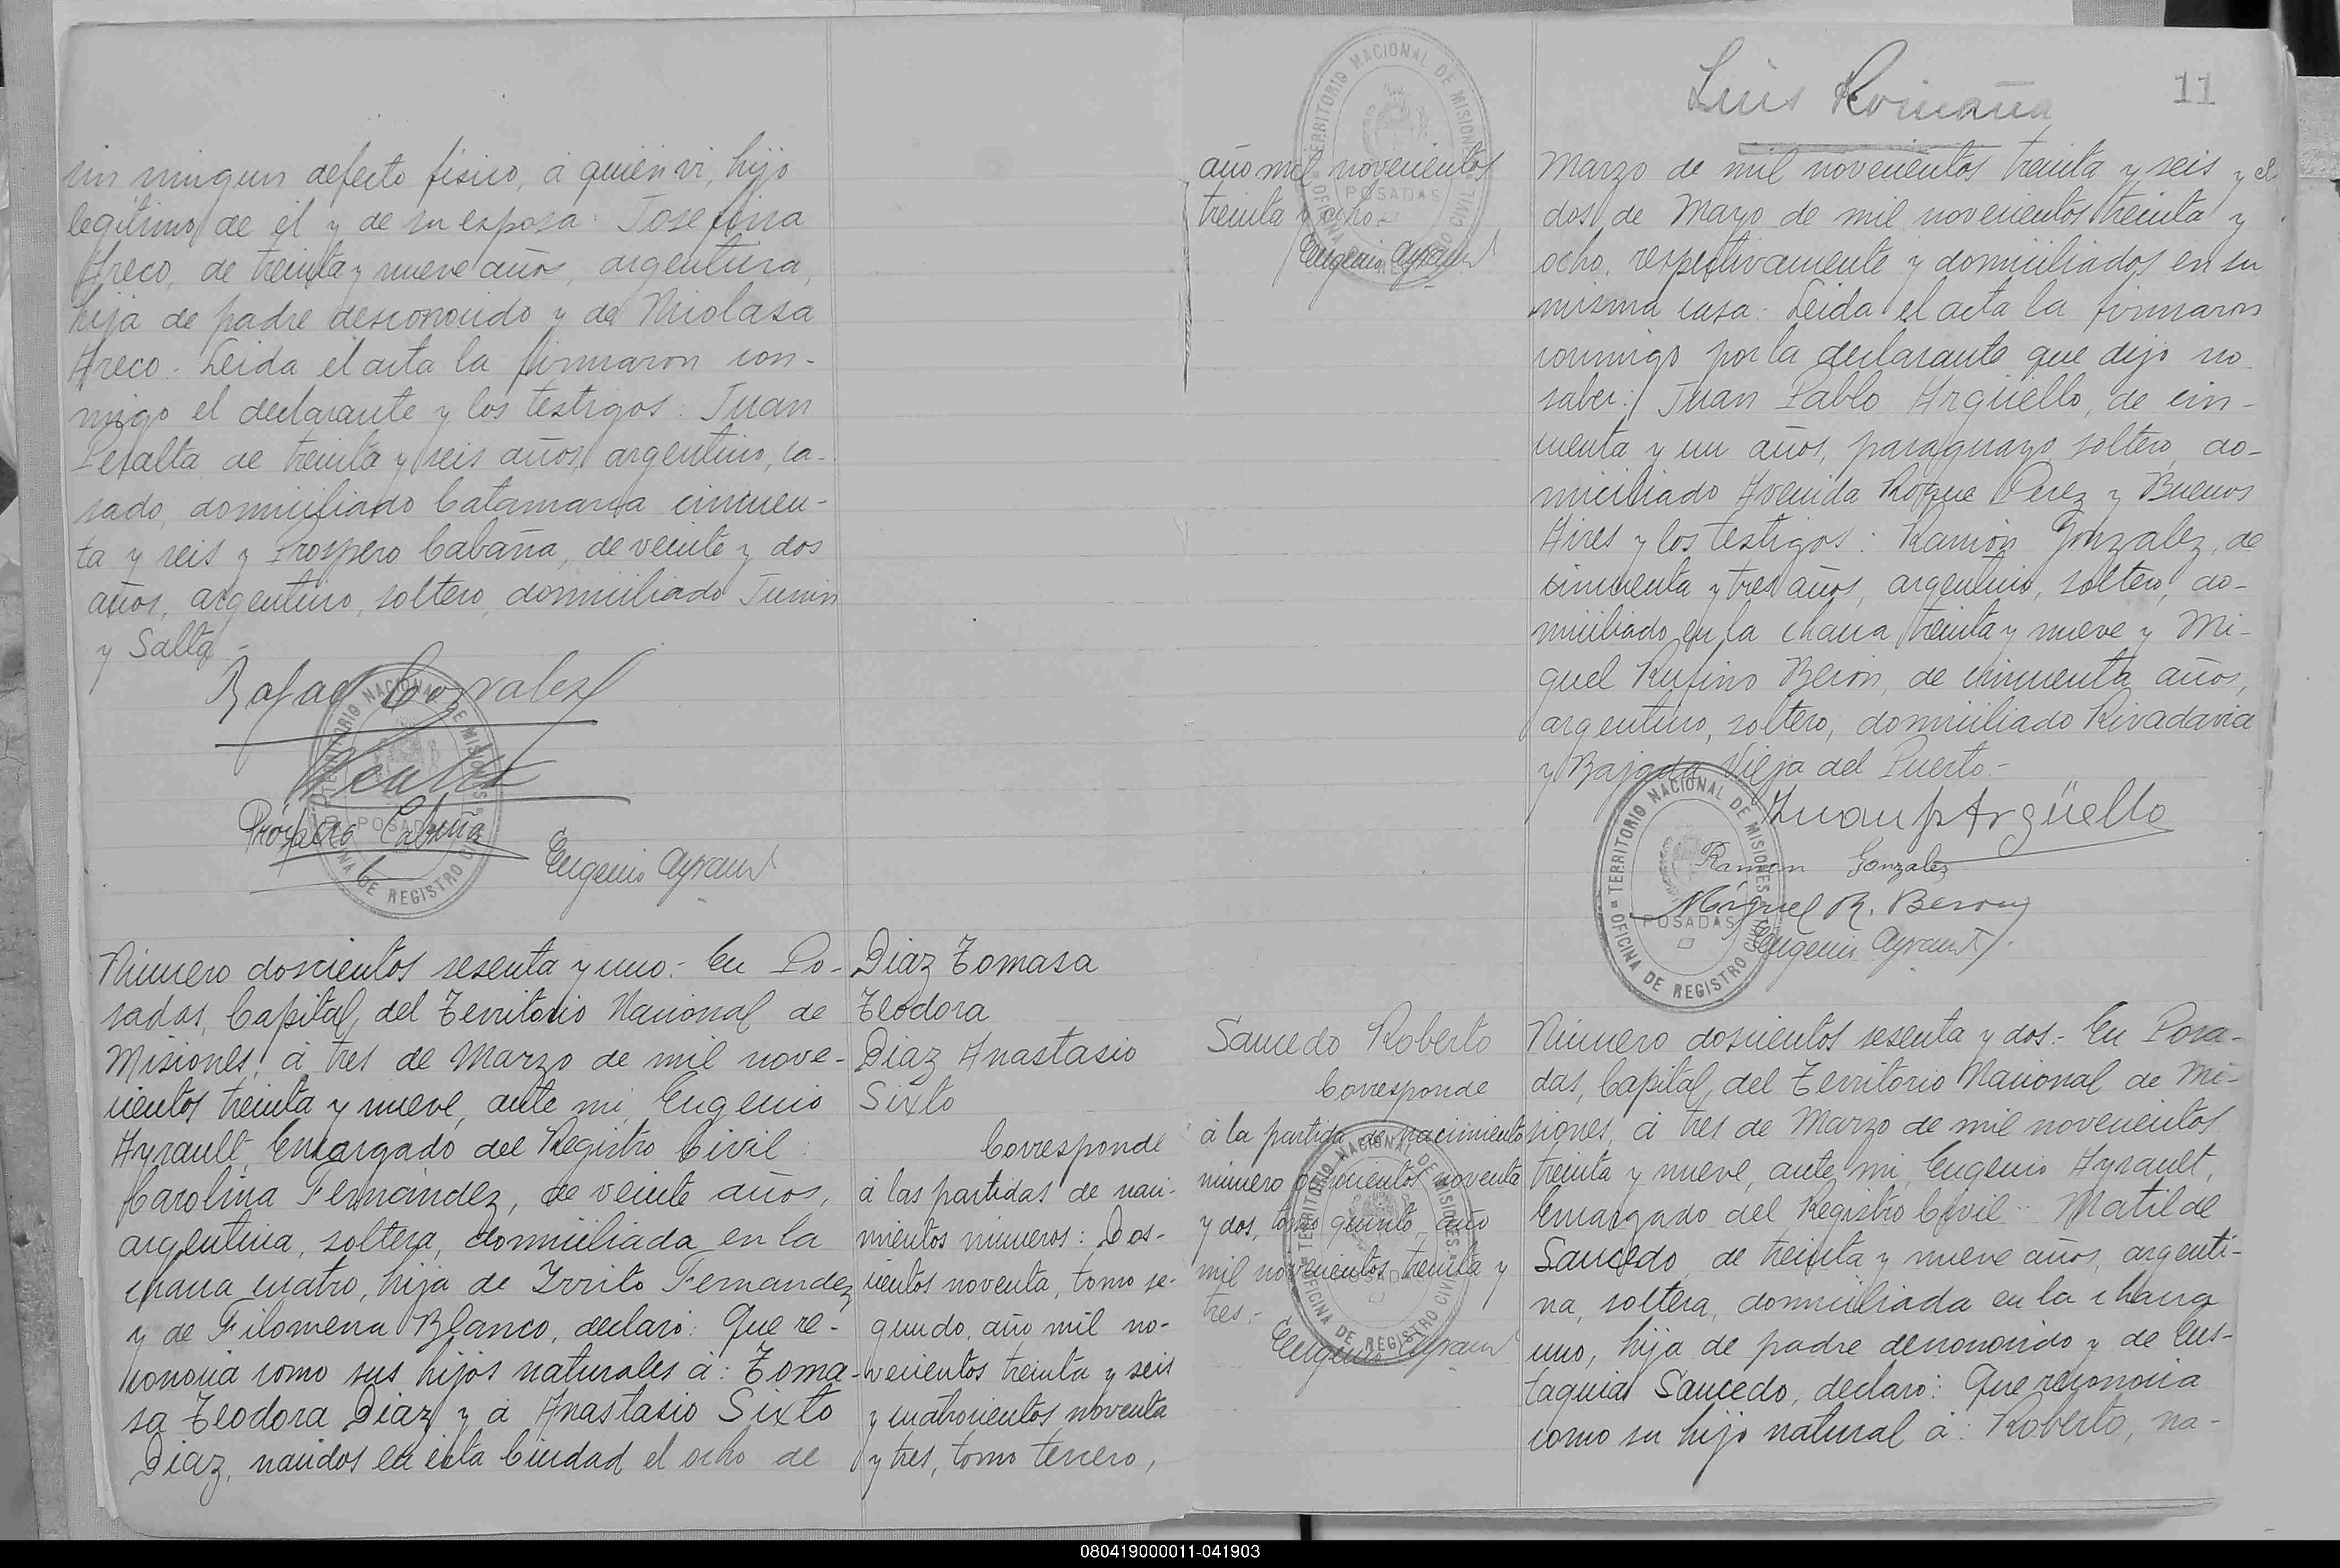 sin ningun defecto físico, á quién vi, hijo
legítimo de él y de su esposa: Josefina
Areco, de treinta y nueve años, argentina,
hija de padre desconocido y de Nicolasa
Areco.- Leida el acta la firmaron con-
migo el declarante y los testigos: Juan
Peralta, de treinta y seis años, argentino, ca-
sado, domiciliado Catamarca cincuen-
ta y seis y Prospero Cabaña, de veinte y dos
años, argentino, soltero, domiciliado Junin
y Salta.-
Rafael Gonzalez
Prospero Cabaña
Eugenio Ayrault
TERRITORIO NACIONAL DE MISIONES
POSADAS
OFICINA DE REGISTRO CIVIL
Número doscientos sesenta y uno.- En Po-
sadas, Capital del Territorio Nacional de
Misiones, á tres de Marzo de mil nove-
cientos treinta y nueve, ante mi, Eugenio
Ayrault, Encargado del Registro Civil:
Carolina Fernández, de veinte años,
argentina, soltera, domiciliada en la
chacra cuatro, hija de Zrrito Fernandez
y de Filomena Blanco, declaró: Que re-
conocia como sus hijos naturales á: Toma-
sa Teodora Diaz y á Anastasio Sixto
Diaz, nacidos en esta Ciudad el ocho de
Diaz Tomasa
Teodora
Diaz Anastasio
Sixto
Corresponde
á las partidas de naci-
mientos números: Dos-
cientos noventa, tomo se-
gundo, año mil no-
vecientos treinta y seis
y cuatrocientos noventa
y tres, tomo tercero,
año mil novecientos
treinta y ocho.-
Eugenio Ayrault
TERRITORIO NACIONAL DE MISIONES
POSADAS
OFICINA DE REGISTRO CIVIL
Luis Romaña
11
Marzo de mil novecientos treinta y seis y el
dos de Mayo de mil novecientos treinta y
ocho, respectivamente y domiciliados en su
misma casa. Leida el acta la firmaron
conmigo por la declarante que dijo no
saber: Juan Pablo Argüello, de cin-
cuenta y un años, paraguayo, soltero, do-
miciliado Avenida Roque Perez y Buenos
Aires y los testigos: Ramón Gonzalez, de
cincuenta y tres años, argentino, soltero, do-
miciliado en la chacra treinta y nueve y Mi-
guel Rufino Beron, de cincuenta años,
argentino, soltero, domiciliado Rivadavia
y Bajada Vieja del Puerto.-
Juan P Argüello
Ramon Gonzalez
Miguel R. Beron
Eugenio Ayrault
TERRITORIO NACIONAL DE MISIONES
POSADAS
OFICINA DE REGISTRO CIVIL
Saucedo Roberto
Corresponde
á la partida de nacimiento
número novecientos noventa
y dos, tomo quinto, año
mil novecientos treinta y
tres.-
Eugenio Ayrault
TERRITORIO NACIONAL DE MISIONES
POSADAS
OFICINA DE REGISTRO CIVIL
Número doscientos sesenta y dos.- En Posa-
das, Capital del Territorio Nacional de Mi-
siones, á tres de Marzo de mil novecientos
treinta y nueve, ante mi, Eugenio Ayrault,
Encargado del Registro Civil: Matilde
Saucedo, de treinta y nueve años, argenti-
na, soltera, domiciliada en la chacra
uno, hija de padre desconocido y de Eus-
taquia Saucedo, declaró: Que reconocia
como su hijo natural á: Roberto, na-
080419000011-041903